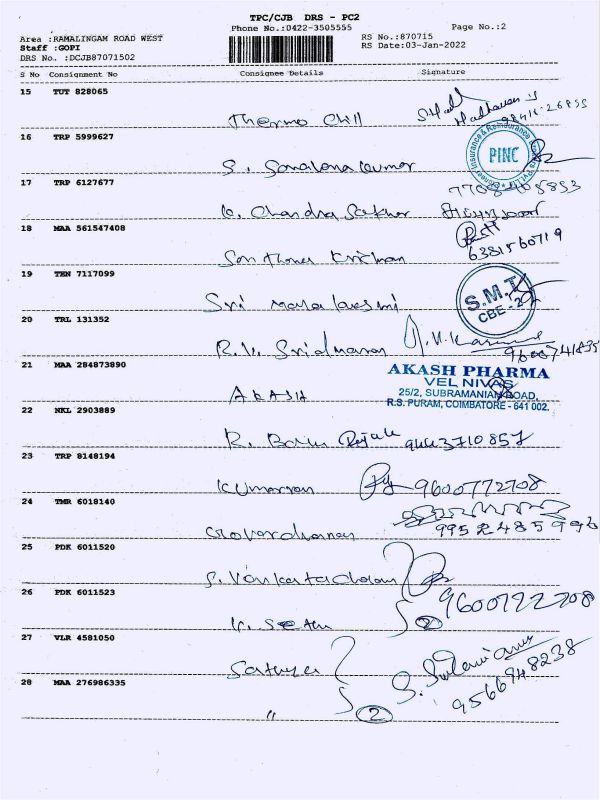 TPC/CJB DRS - PC2
Phone No.:0422-3505555
Page No.:2
Area :RAMALINGAM ROAD WEST
RS No.:870715
Staff :GOPI
RS Date:03-Jan-2022
DRS No. :DCJB87071502
S No Consignment No Consignee Details Signature
15 TUT 828065
Thermo Chill
Madhavan
16 TRP 5999627
S. Saravana Kumar
PINC
17 TRP 6127677
K. Chandra Sekhar
18 MAA 561547408
6381560719
19 TEN 7117099
Sri Mahalakshmi
S.M.T
CBE - 2
20 TRL 131352
R.V. Sridharan
9600741835
21 MAA 284873890
AKASH
AKASH PHARMA
VEL NIVAS
25/2, SUBRAMANIAM ROAD,
R.S. PURAM, COIMBATORE - 641 002.
22 NKL 2903889
R. Babu
9443710857
23 TRP 8148194
Kumaran
9600772708
24 TMR 6018140
Govardhanan
25 PDK 6011520
S. Venkatachalam
26 PDK 6011523
K. Sethu
2
27 VLR 4581050
Sathya
9566948238
28 MAA 276986335
"
2